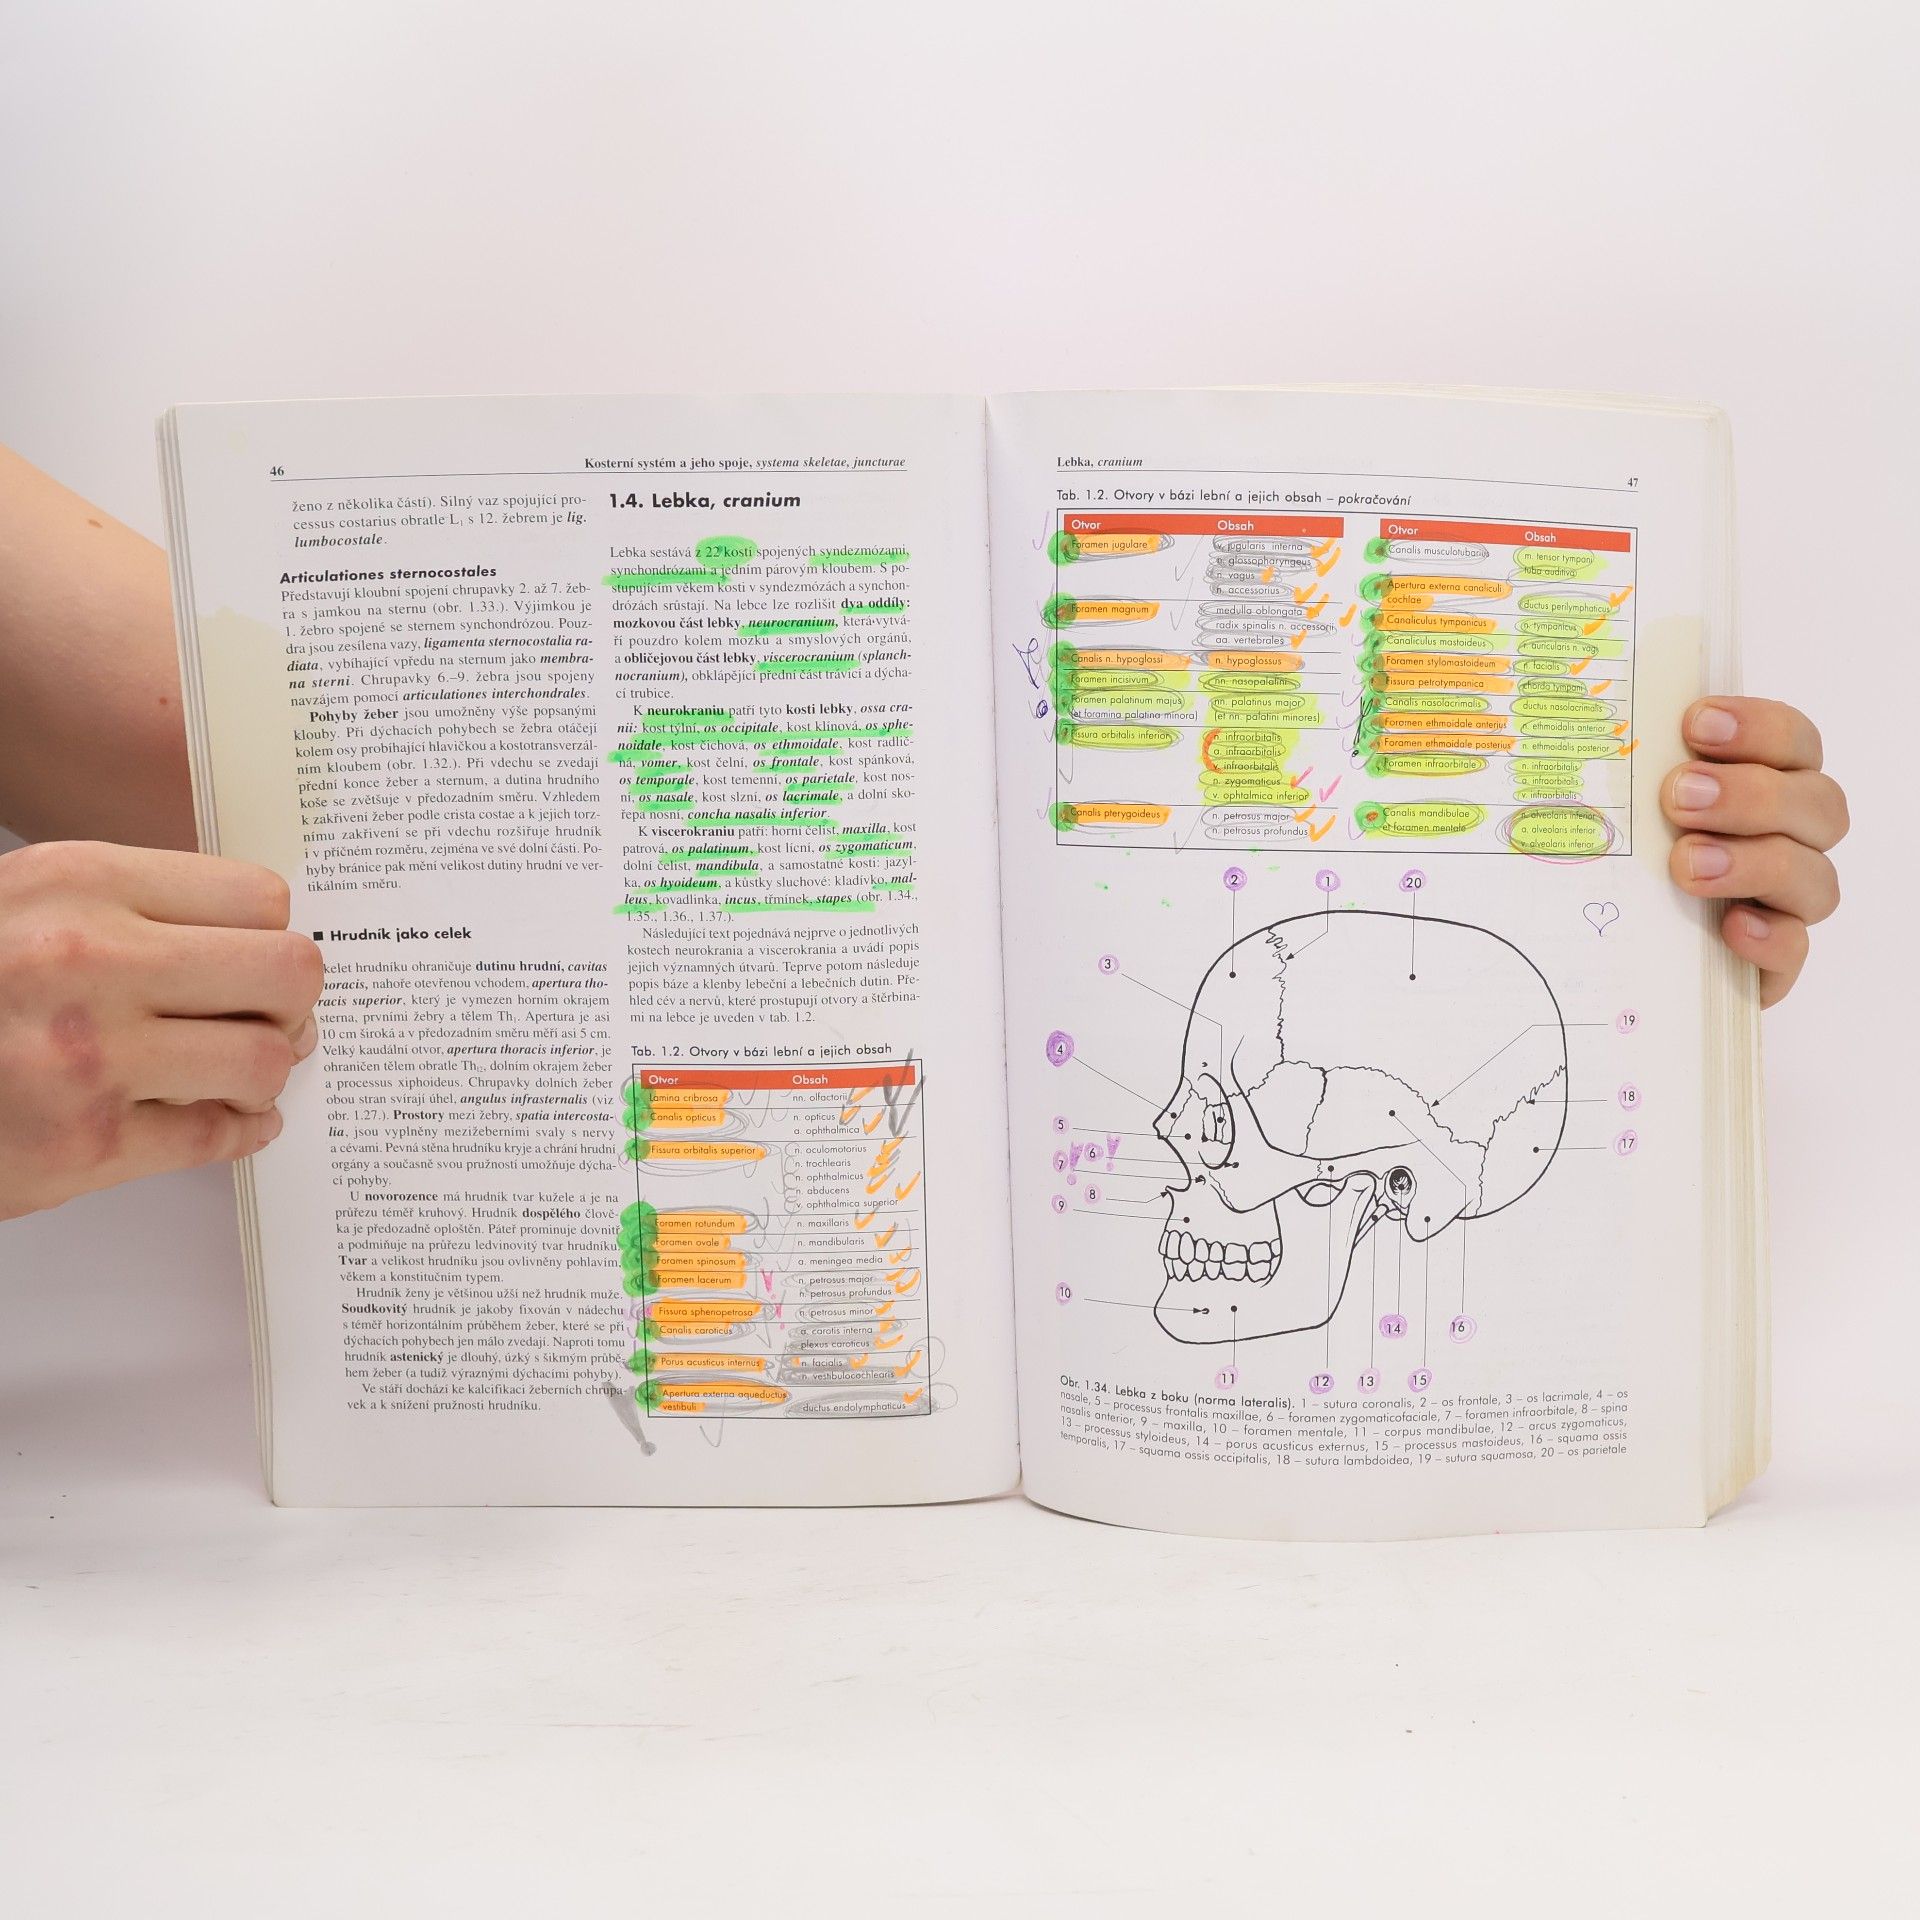 46
Kosterní systém a jeho spoje, systema skeletae, juncturae
ženo z několika částí). Silný vaz spojující pro-
cessus costarius obratle L1 s 12. žebrem je lig.
lumbocostale.
Articulationes sternocostales
Představují kloubní spojení chrupavky 2. až 7. žeb-
ra s jamkou na sternu (obr. 1.33.). Výjimkou je
1. žebro spojené se sternem synchondrózou. Pouz-
dra jsou zesílena vazy, ligamenta sternocostalia ra-
diata, vybíhající vpředu na sternum jako membra-
na sterni. Chrupavky 6.–9. žebra jsou spojeny
navzájem pomocí articulationes interchondrales.
Pohyby žeber jsou umožněny výše popsanými
klouby. Při dýchacích pohybech se žebra otáčejí
kolem osy probíhající hlavičkou a kostotransverzál-
ním kloubem (obr. 1.32.). Při vdechu se zvedají
přední konce žeber a sternum, a dutina hrudního
koše se zvětšuje v předozadním směru. Vzhledem
k zakřivení žeber podle crista costae a k jejich torz-
nímu zakřivení se při vdechu rozšiřuje hrudník
i v příčném rozměru, zejména ve své dolní části. Po-
hyby bránice pak mění velikost dutiny hrudní ve ver-
tikálním směru.
■ Hrudník jako celek
kelet hrudníku ohraničuje dutinu hrudní, cavitas
horacis, nahoře otevřenou vchodem, apertura tho-
racis superior, který je vymezen horním okrajem
sterna, prvními žebry a tělem Th1. Apertura je asi
10 cm široká a v předozadním směru měří asi 5 cm.
Velký kaudální otvor, apertura thoracis inferior, je
ohraničen tělem obratle Th12, dolním okrajem žeber
a processus xiphoideus. Chrupavky dolních žeber
obou stran svírají úhel, angulus infrasternalis (viz
obr. 1.27.). Prostory mezi žebry, spatia intercosta-
lia, jsou vyplněny mezižeberními svaly s nervy
a cévami. Pevná stěna hrudníku kryje a chrání hrudní
orgány a současně svou pružností umožňuje dýcha-
cí pohyby.
U novorozence má hrudník tvar kužele a je na
průřezu téměř kruhový. Hrudník dospělého člově-
ka je předozadně oploštěn. Páteř prominuje dovnitř
a podmiňuje na průřezu ledvinovitý tvar hrudníku.
Tvar a velikost hrudníku jsou ovlivněny pohlavím,
věkem a konstitučním typem.
Hrudník ženy je většinou užší než hrudník muže.
Soudkovitý hrudník je jakoby fixován v nádechu
s téměř horizontálním průběhem žeber, které se při
dýchacích pohybech jen málo zvedají. Naproti tomu
hrudník astenický je dlouhý, úzký s šikmým průbě-
hem žeber (a tudíž výraznými dýchacími pohyby).
Ve stáří dochází ke kalcifikaci žeberních chrupa-
vek a k snížení pružnosti hrudníku.
1.4. Lebka, cranium
Lebka sestává z 22 kostí spojených syndezmózami,
synchondrózami a jedním párovým kloubem. S po-
stupujícím věkem kosti v syndezmózách a synchon-
drózách srůstají. Na lebce lze rozlišit dva oddíly:
mozkovou část lebky, neurocranium, která vytvá-
ří pouzdro kolem mozku a smyslových orgánů,
a obličejovou část lebky, viscerocranium (splanch-
nocranium), obklápějící přední část trávicí a dýcha-
cí trubice.
K neurokraniu patří tyto kosti lebky, ossa cra-
nii: kost týlní, os occipitale, kost klínová, os sphe-
noidale, kost čichová, os ethmoidale, kost radlič-
ná, vomer, kost čelní, os frontale, kost spánková,
os temporale, kost temenní, os parietale, kost nos-
ní, os nasale, kost slzní, os lacrimale, a dolní sko-
řepa nosní, concha nasalis inferior.
K viscerokraniu patří: horní čelist, maxilla, kost
patrová, os palatinum, kost lícní, os zygomaticum,
dolní čelist, mandibula, a samostatné kosti: jazyl-
ka, os hyoideum, a kůstky sluchové: kladívko, mal-
leus, kovadlinka, incus, třmínek, stapes (obr. 1.34.,
1.35., 1.36., 1.37.).
Následující text pojednává nejprve o jednotlivých
kostech neurokrania a viscerokrania a uvádí popis
jejich významných útvarů. Teprve potom následuje
popis báze a klenby lebeční a lebečních dutin. Pře-
hled cév a nervů, které prostupují otvory a štěrbina-
mi na lebce je uveden v tab. 1.2.
Tab. 1.2. Otvory v bázi lební a jejich obsah
Otvor Obsah
Lamina cribrosa nn. olfactorii
Canalis opticus n. opticus
a. ophthalmica
Fissura orbitalis superior n. oculomotorius
n. trochlearis
n. ophthalmicus
n. abducens
v. ophthalmica superior
Foramen rotundum n. maxillaris
Foramen ovale n. mandibularis
Foramen spinosum a. meningea media
Foramen lacerum n. petrosus major
n. petrosus profundus
Fissura sphenopetrosa n. petrosus minor
Canalis caroticus a. carotis interna
plexus caroticus
Porus acusticus internus n. facialis
n. vestibulocochlearis
Apertura externa aqueductus
vestibuli ductus endolymphaticus
Lebka, cranium
47
Tab. 1.2. Otvory v bázi lební a jejich obsah – pokračování
Otvor Obsah
Foramen jugulare v. jugularis interna
n. glossopharyngeus
n. vagus
n. accessorius
Foramen magnum medulla oblongata
radix spinalis n. accessorii
aa. vertebrales
Canalis n. hypoglossi n. hypoglossus
Foramen incisivum nn. nasopalatini
Foramen palatinum majus nn. palatinus major
(et foramina palatina minora) (et nn. palatini minores)
Fissura orbitalis inferior n. infraorbitalis
a. infraorbitalis
v. infraorbitalis
n. zygomaticus
v. ophtalmica inferior
Canalis pterygoideus n. petrosus major
n. petrosus profundus
Otvor Obsah
Canalis musculotubarius m. tensor tympani
tuba auditiva
Apertura externa canaliculi
cochlae ductus perilymphaticus
Canaliculus tympanicus n. tympanicus
Canaliculus mastoideus r. auricularis n. vagi
Foramen stylomastoideum n. facialis
Fissura petrotympanica chorda tympani
Canalis nasolacrimalis ductus nasolacrimalis
Foramen ethmoidale anterius n. ethmoidalis anterior
Foramen ethmoidale posterius n. ethmoidalis posterior
Foramen infraorbitale n. infraorbitalis
a. infraorbitalis
v. infraorbitalis
Canalis mandibulae n. alveolaris inferior
et foramen mentale a. alveolaris inferior
v. alveolaris inferior
2 1 20
3
19
4
18
5
17
6
7
8
9
10
14 16
11 12 13 15
Obr. 1.34. Lebka z boku (norma lateralis). 1 – sutura coronalis, 2 – os frontale, 3 – os lacrimale, 4 – os
nasale, 5 – processus frontalis maxillae, 6 – foramen zygomaticofaciale, 7 – foramen infraorbitale, 8 – spina
nasalis anterior, 9 – maxilla, 10 – foramen mentale, 11 – corpus mandibulae, 12 – arcus zygomaticus,
13 – processus styloideus, 14 – porus acusticus externus, 15 – processus mastoideus, 16 – squama ossis
temporalis, 17 – squama ossis occipitalis, 18 – sutura lambdoidea, 19 – sutura squamosa, 20 – os parietale